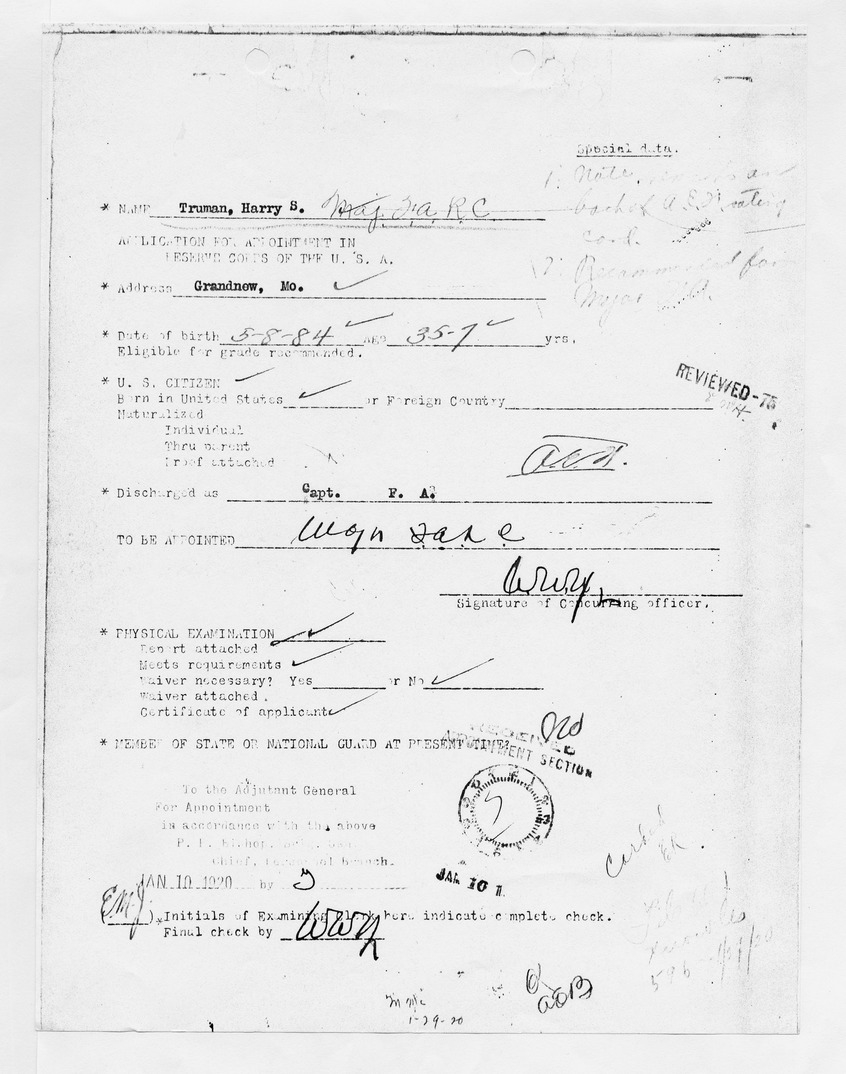 Special data.
1. Note
back of A.E.F. rating
card.
2. Recommended for
* NAME Truman, Harry S. Maj. F.A.R.C.
APPLICATION FOR APPOINTMENT IN
RESERVE CORPS OF THE U. S. A.
* Address Grandnew, Mo.
* Date of birth 5-8-84 age 35-7 yrs.
Eligible for grade recommended.
* U. S. CITIZEN
Born in United States or Foreign Country
Naturalized
Individual
Thru parent
Proof attached
REVIEWED-75
* Discharged as Capt. F. A.
TO BE APPOINTED Major F.A.R.C.
WWY
Signature of Concurring officer.
* PHYSICAL EXAMINATION
Report attached
Meets requirements
Waiver necessary? Yes or No
Waiver attached.
Certificate of applicant
* MEMBER OF STATE OR NATIONAL GUARD AT PRESENT TIME? no
RECEIVED
APPOINTMENT SECTION
To the Adjutant General
For Appointment
in accordance with the above
Chief, Personnel Branch.
JAN 10 1920 by
JAN 10 1
Carded
ER
(EMJ) * Initials of Examining Clerk here indicate complete check.
Final check by WWY
1-29-20